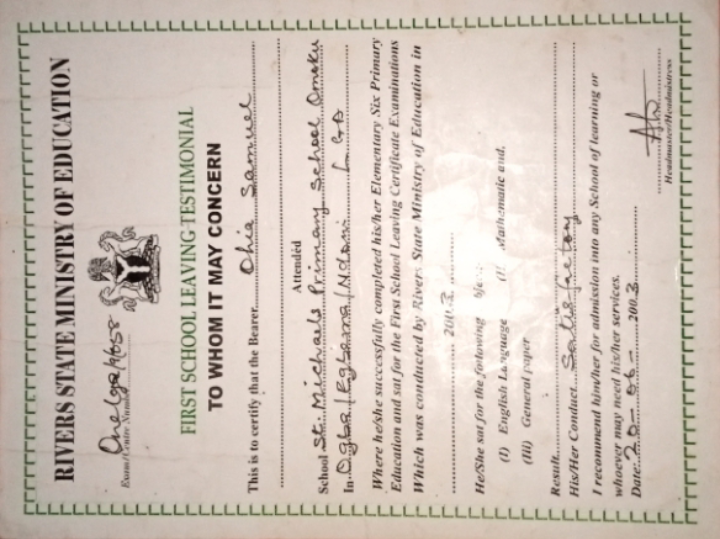 RIVERS STATE MINISTRY OF EDUCATION
Exam/Centre Number
FIRST SCHOOL LEAVING-TESTIMONIAL
TO WHOM IT MAY CONCERN
This is to certify that the Bearer Ohia Samuel
Attended
School St. Michaels Primary School Omoku
In Ogba/Egbema/Ndoni LGA
Where he/she successfully completed his/her Elementary Six Primary
Education and sat for the First School Leaving Certificate Examinations
Which was conducted by Rivers State Ministry of Education in
2003
He/She sat for the following
(I) English Language (II) Mathematic and,
(III) General paper
Result
His/Her Conduct Satisfactory
I recommend him/her for admission into any School of learning or
whoever may need his/her services.
Date: 20-06- 2003
Headmaster/Headmistress